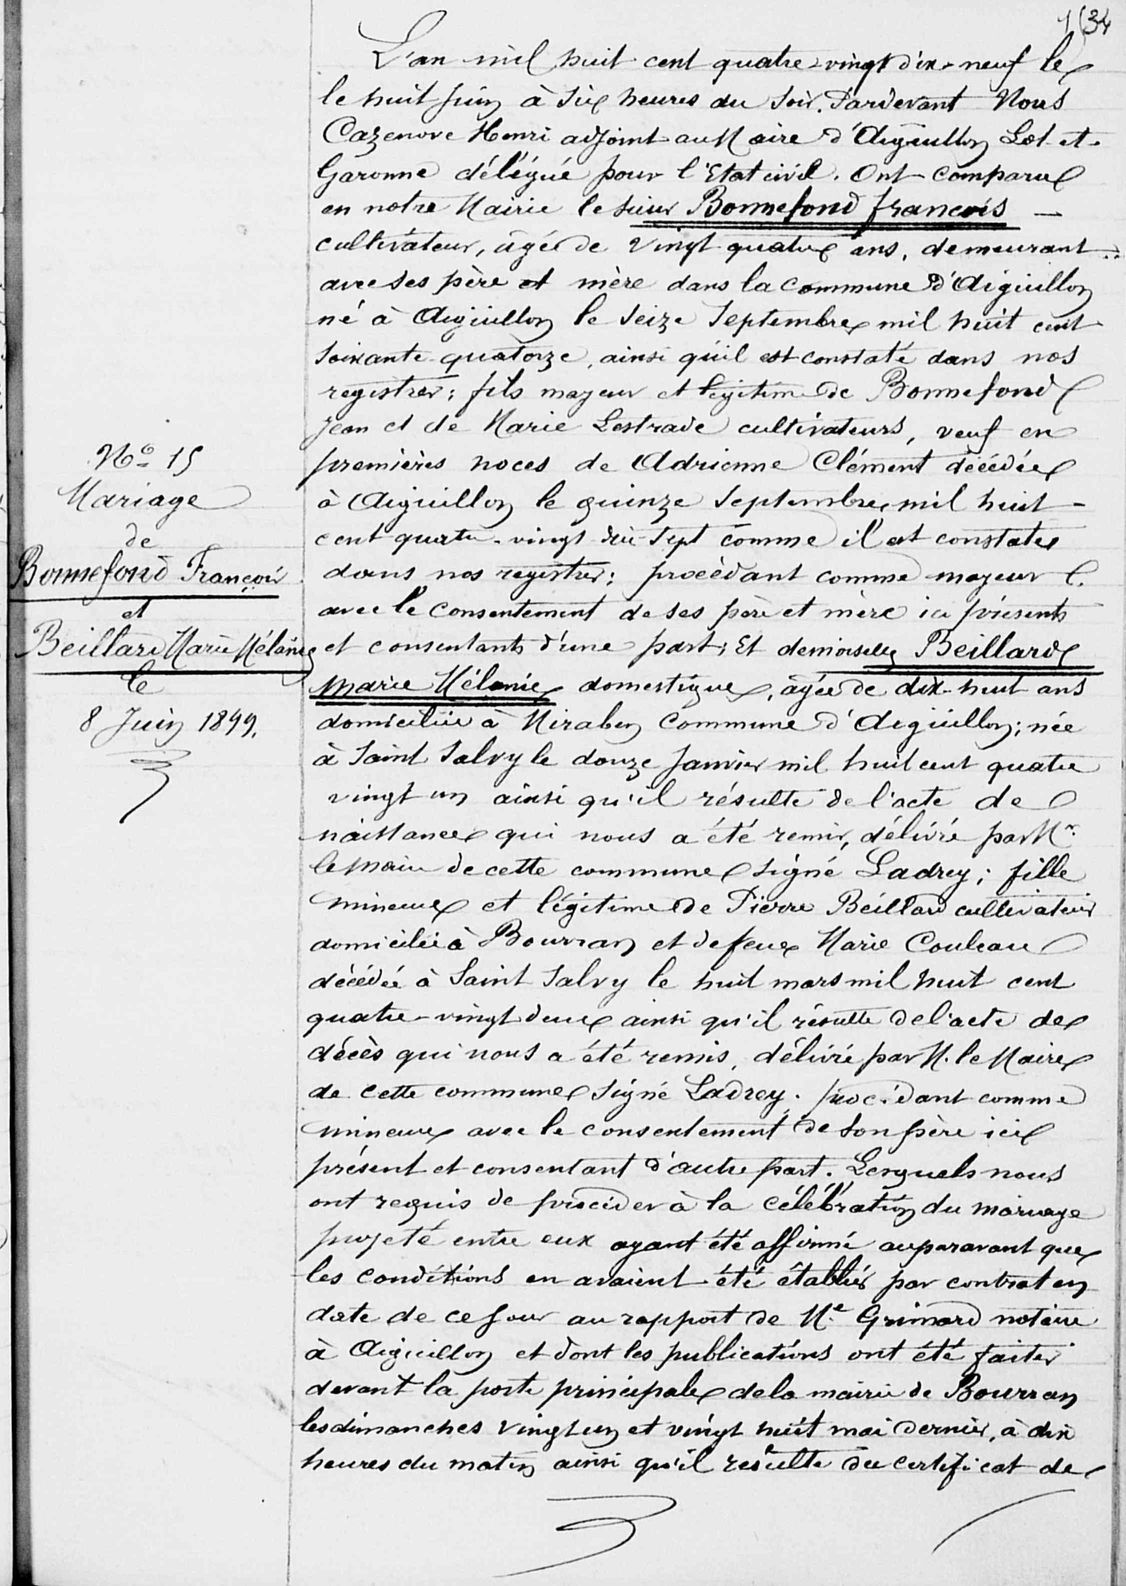 134
L'an mil huit cent quatre-vingt dix-neuf le
le huit Juin à six heures du soir. Pardevant Nous
Cazenove Henri adjoint au Maire d'Aiguillon Lot-et-
Garonne délégué pour l'Etat civil. Ont comparu
en notre Mairie le sieur Bonnefond françois —
cultivateur, âgé de vingt quatre ans, demeurant
avec ses père et mère dans la commune d'Aiguillon
né à Aiguillon le seize septembre mil huit cent
soixante quatorze, ainsi qu'il est constaté dans nos
registres; fils majeur et légitime de Bonnefond
Jean et de Marie Lestrade cultivateurs, veuf en
premières noces de Adrienne Clément décédée
à Aiguillon le quinze septembre mil huit -
cent quatre-vingt dix sept comme il est constaté
dans nos registres; procédant comme majeur
avec le consentement de ses père et mère ici présents
et consentants d'une part; Et demoiselle Beillard
Marie Mélanie domestique, âgée de dix-huit ans
domiciliée à Mirabeu commune d'Aiguillon; née
à Saint Salvy le douze Janvier mil huit cent quatre
vingt un ainsi qu'il résulte de l'acte de
naissance qui nous a été remis, délivré par Mr.
le Maire de cette commune signé Ladrey; fille
mineure et légitime de Pierre Beillard cultivateur
domicilié à Bourran et de feue Marie Couleau
décédée à Saint Salvy le huit mars mil huit cent
quatre-vingt deux ainsi qu'il résulte de l'acte de
décès qui nous a été remis, délivré par M. le Maire
de cette commune signé Ladrey. procédant comme
mineure avec le consentement de son père ici
présent et consentant d'autre part. Lesquels nous
ont requis de procéder à la célébration du mariage
projeté entre eux ayant été affirmé auparavant que
les conditions en avaient été établies par contrat en
date de ce jour au rapport de Me Grimard notaire
à Aiguillon et dont les publications ont été faites
devant la porte principale de la mairie de Bourran
les dimanches vingt un et vingt huit mai dernier, à dix
heures du matin ainsi qu'il résulte du certificat de
No 15
Mariage
de
Bonnefond François
et
Beillard Marie Mélanie
le
8 Juin 1899.